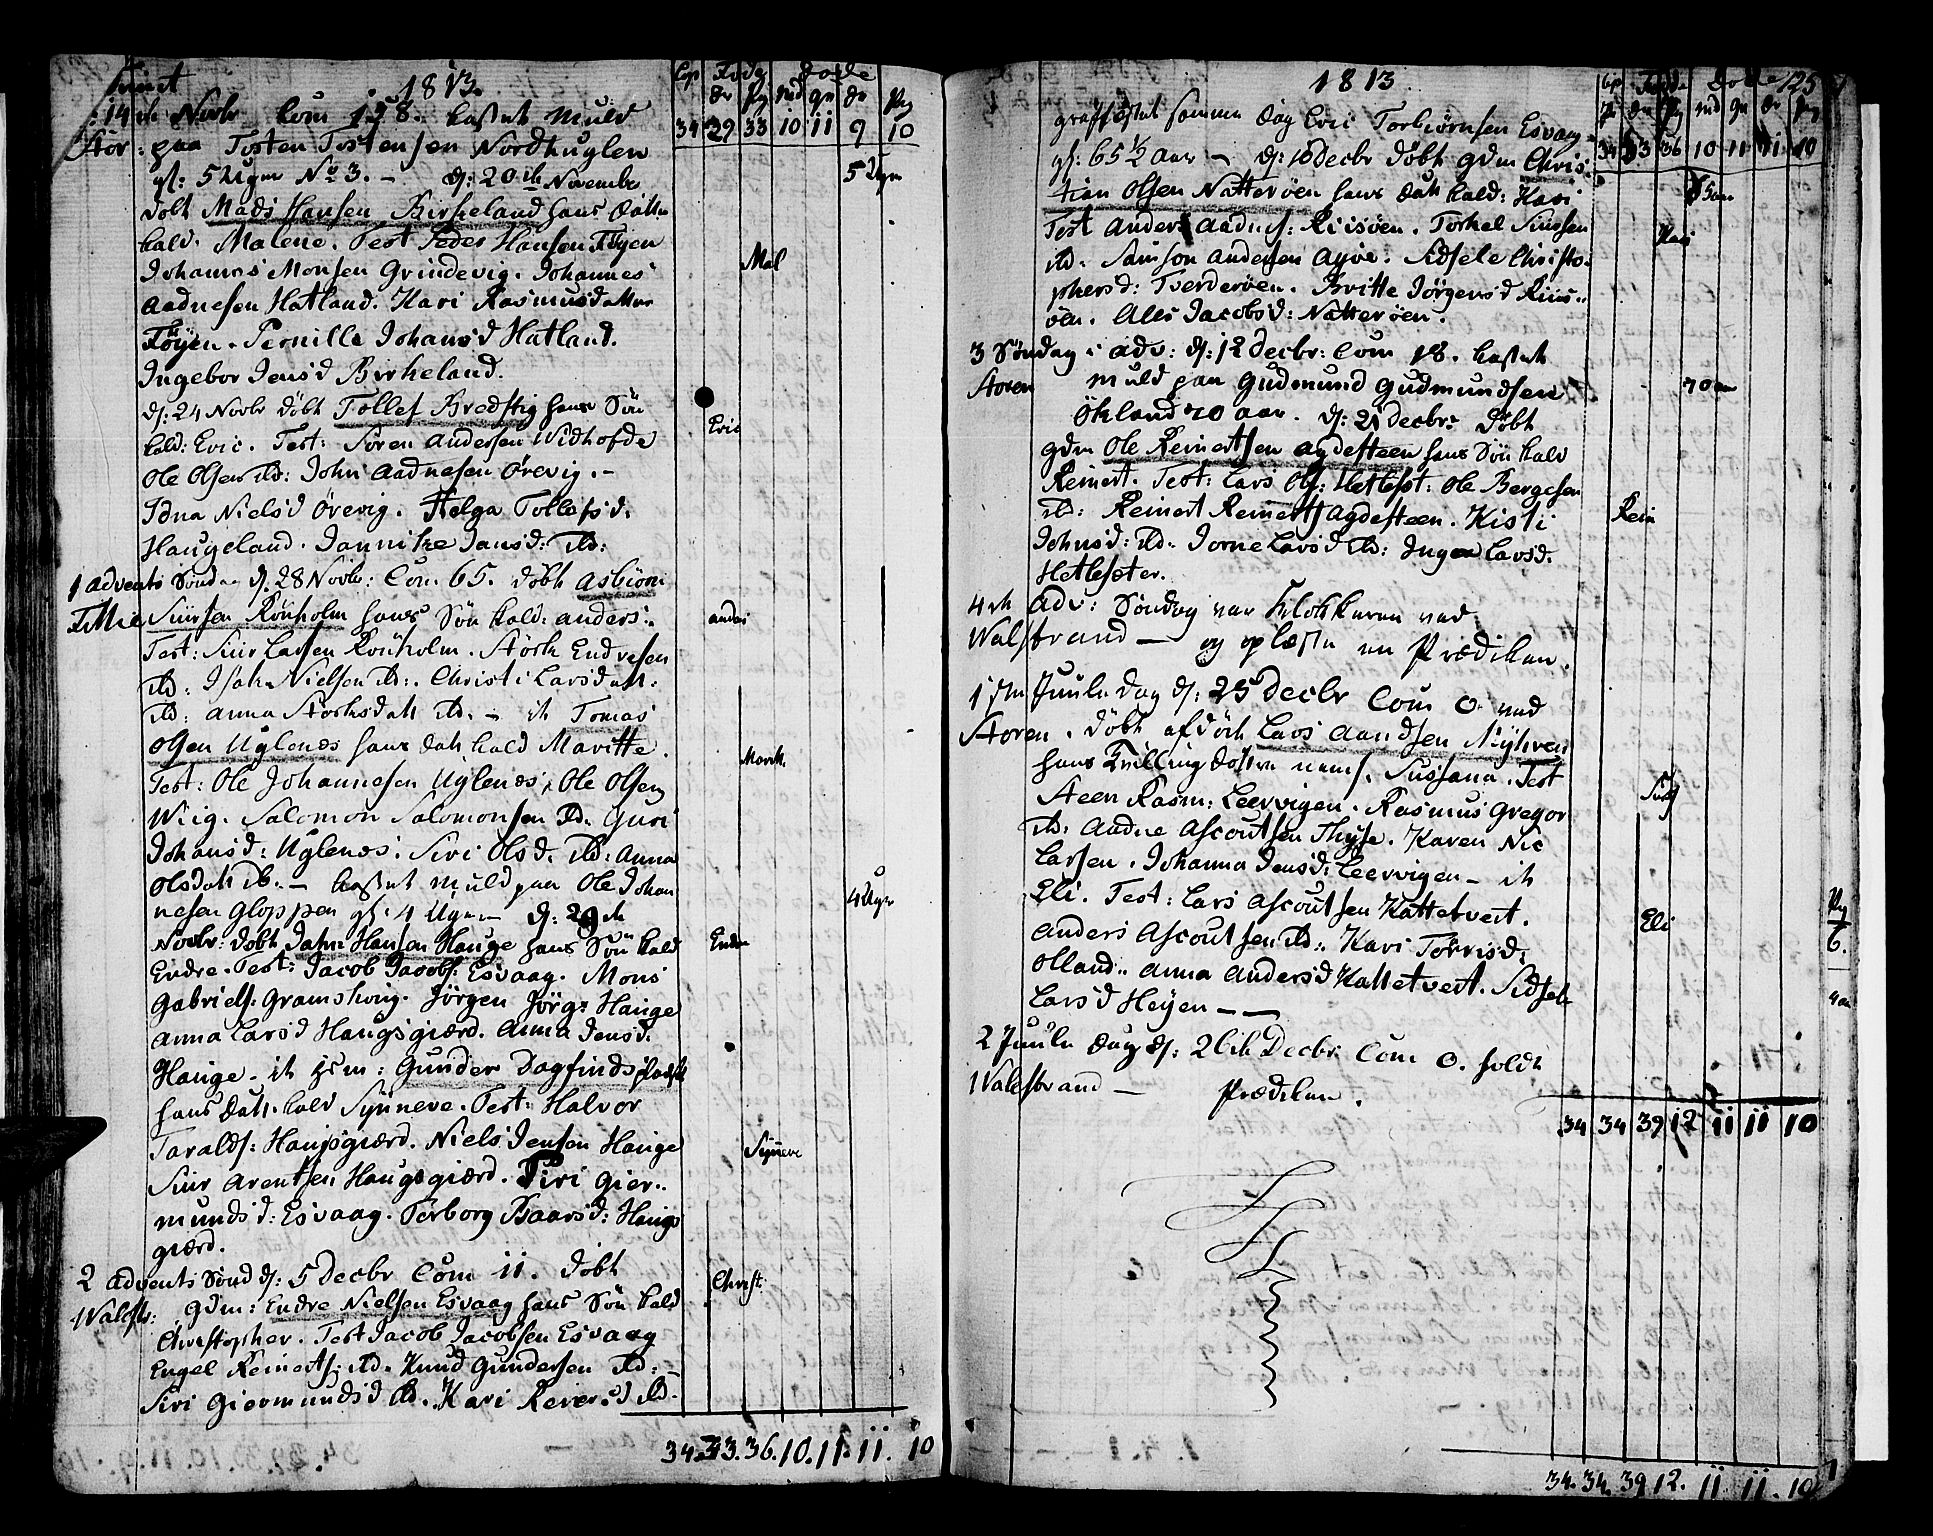 1813.
Cop Fødde Døde
Dr Pg Md Qv Dr Pg
34 29 33 10 11 9 10
14de Novbr Com 158. kastet Muld
Stor: paa Tosten Tostensen Nordhuglen
gl: 5 Uger No 3. — d: 20de November
5 Uger
Døbt Mads Hansen Birkeland hans Datter
kald. Malene. Test Peder Hansen Føyen
Mal
Johannes Monsen Grindevig. Johannes
Aadnesen Hatland. Kari Rasmusdatter
Føyen. Pernille Johansd Hatland.
Ingebor Jensd Birkeland.
d: 24 Novbr døbt Tollef Bredstig hans Søn
kald: Eric. Test: Søren Andersen Widhofde
Eric
Ole Olsen ibd: John Aadnesen Ørevig. -
Idna Nielsd Ørevig. Helga Tollefsd.
Haugeland. Jannike Jansd: ibd:
1 Advents Søndag d. 28 Novbr: Com 65. døbt Asbiørn
Fittie Siursen Rønholm hans Søn kald: Anders.
Ander
Test: Siur Larsen Rønholm. Størk Endresen
ibd: Isak Nielsen ibd: Christi Larsdatt:
ibd: Anna Storksdatt ibd. — it Tomas
Olsen Uglenes hans datt kald Maritte.
Marit.
Test: Ole Johannesen Uglenes, Ole Olsen
Wiig. Salomon Salomonsen ibd. Guri
Johansd: Uglenes. Siri Olsd. ibd: Anna
Olsdatt ib. — kastet Muld paa Ole Johan
nesen Gloppen gl: 4 Uger — d: 29de
4 Uger
Novbr: døbt Hansen Hauge hans Søn kald
Endre
Endre. Test: Jacob Jacobs: Esvaag. Mons
Gabriels. Gramshoug. Jörgen Jörg: Hauge
Anna Larsd Haugsgiærd. Anna Jensd.
Hauge. it hiem: Gunder Dagfinds
hans Datt. kald Synneve. Test: Halvor
Taralds: Haugsgiærd. Niels Jensen Hauge
Synneve
Siur Arentsen Haugsgiærd. Siri Gier..
mundsd: Esvaag. Torborg Baarsd: Haugs
giærd.
2 Advents Sønd d: 5 Decbr Com 11. døbt
Christ:
Walestr: gdm: Endre Nielsen Esvaag hans Søn kald
Christopher. Test Jacob Jacobsen Esvaag
Engel Reinerts: ibd. Knud Gundersen ibd:
Siri Giermundsd ib. Kari Reiersd ibd.
34. 33. 36. 10. 11. 11. 10
1813.
125
Cop Fødde Døde
Dr Pg Md Qv Dr Pg
34 33 36 10 11 11 10
graffæstet samme Dag Eric Torbiørnsen Esvaag
gl: 65½ Aar — d: 10 Decbr døbt gdm Chris-
tian Olsen Natterøen hans datt kald: Kari
Test Anders Aadnes: Riisøen. Torkel Siursen
Kari
ibd. Samson Andersen Ayve. Sidsele Christo-
phersd: Tverderøen. Britte Jörgensd Riis-
øen. Ales Jacobsd: Natterøen.
3 Søndag i Adv: d: 12 Decbr: Com 18. kastet
Storen Muld paa Gudmund Gudmundsen
70 aar
Økland 70 aar. d: 21 Decbr: døbt
gdm Ole Reinertsen Agdesteen hans Søn kald
Reinert. Test: Lars Ols: Hetlest: Ole Bergesen
ibd: Reinert Reinerts Agdesteen. Kisti
Rein
Johnsd: ibd. Jorne Larsd ibd: Inger Larsd.
Hetlesæter.
4de Adv: Søndag var Klokkeren ved
Walestrand — og oplæste en Prædiken.
1ste Juule Dag d: 25 Decbr Com 0. ved
Storen. døbt afdöde Lars Aandsen Nÿhven
hans Tvilling døtre neml. Susana. Test
Sus
Steen Rasm: Leervigen. Rasmus Gregor
ibd: Aadne Ascoutsen Thyse. Karen Nic
Larsen. Johanna Jensd: Leervigen — it
Eli. Test: Lars Ascoutsen Kattetveit.
Eli
Anders Ascoutsen ibd: Kari Torrisd.
Olland. Anna Andersd Kattetveit. Sidsel
Larsd Heÿen — —
2 Juule Dag d: 26de Decbr Com 0. holdt
Walestrand — Prædiken.
34 34 39 12 11 11 10
Pg
6.
34. 34. 39 12. 11 11. 10